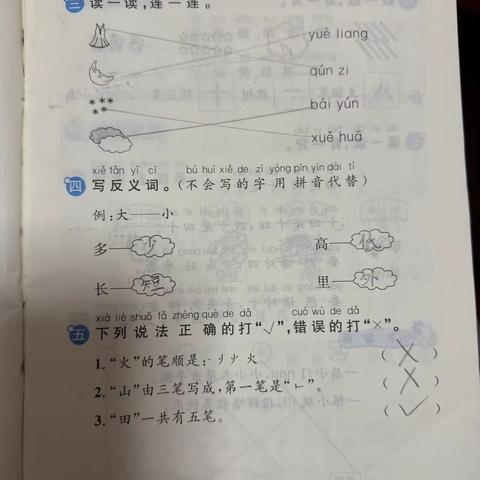 三 读一读,连一连。
yuè liang
qún zi
bái yún
xuě huā
xiě fǎn yì cí bú huì xiě de zì yòng pīn yīn dài tì
四 写反义词。(不会写的字用拼音代替)
例:大——小
多——少 高——低
长——短 里——外
xià liè shuō fǎ zhèng què de dǎ cuò wù de dǎ
五 下列说法正确的打“√”,错误的打“×”。
1.“火”的笔顺是: (×)
2.“山”由三笔写成,第一笔是“𠃊”。 (×)
3.“田”一共有五笔。 (√)